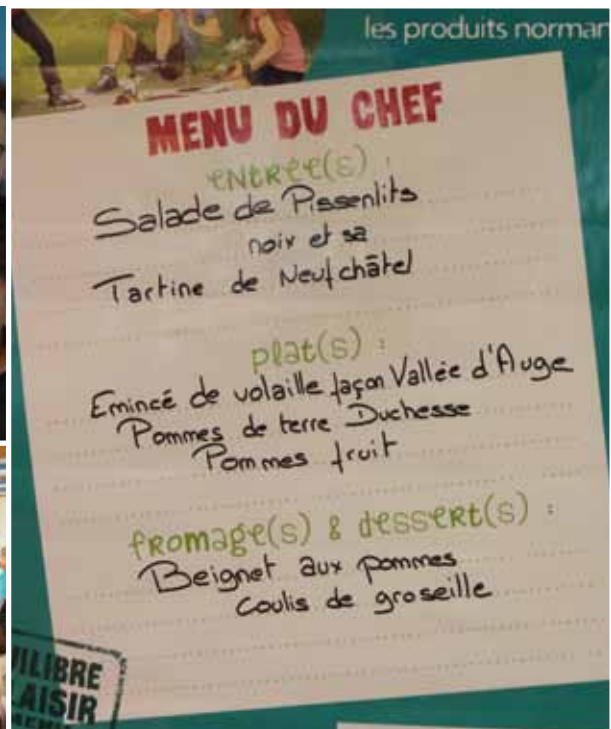 les produits norman
MENU DU CHEF
entrée(s) :
Salade de Pissenlits
noix et sa
Tartine de Neufchâtel
plat(s) :
Emincé de volaille façon Vallée d'Auge
Pommes de terre Duchesse
Pommes fruit
fromage(s) & dessert(s) :
Beignet aux pommes
Coulis de groseille
ILIBRE
LAISIR